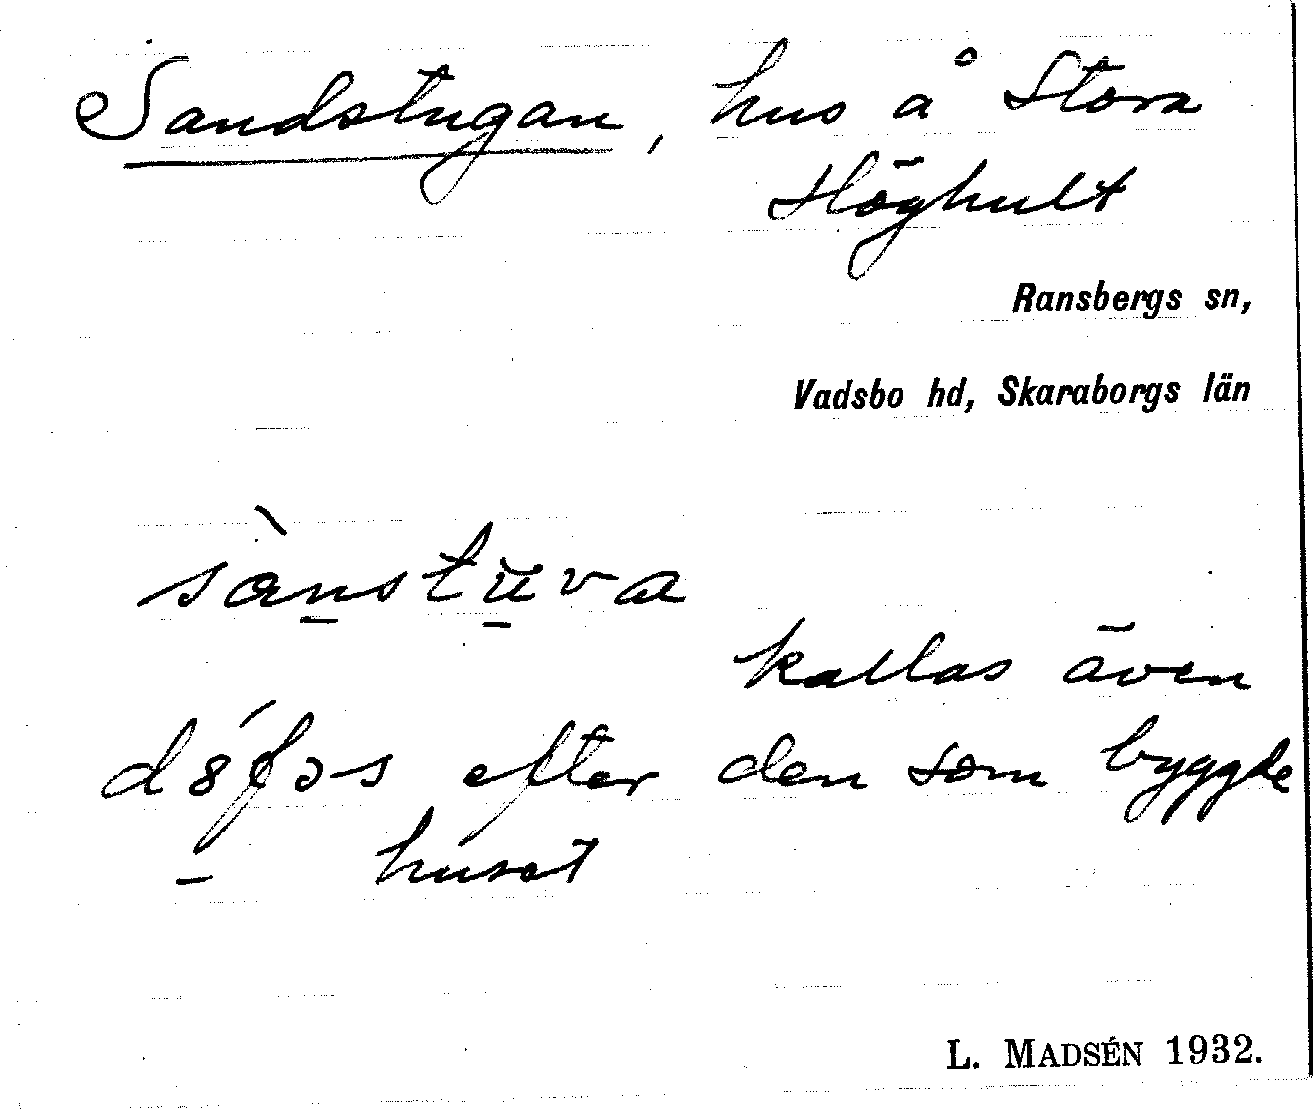 Sandstugan, hus å Stora
Höghult
Ransbergs sn,
Vadsbo hd, Skaraborgs län
sànstuva
kallas även
efter den som byggde
huset
L. MADSÉN 1932.